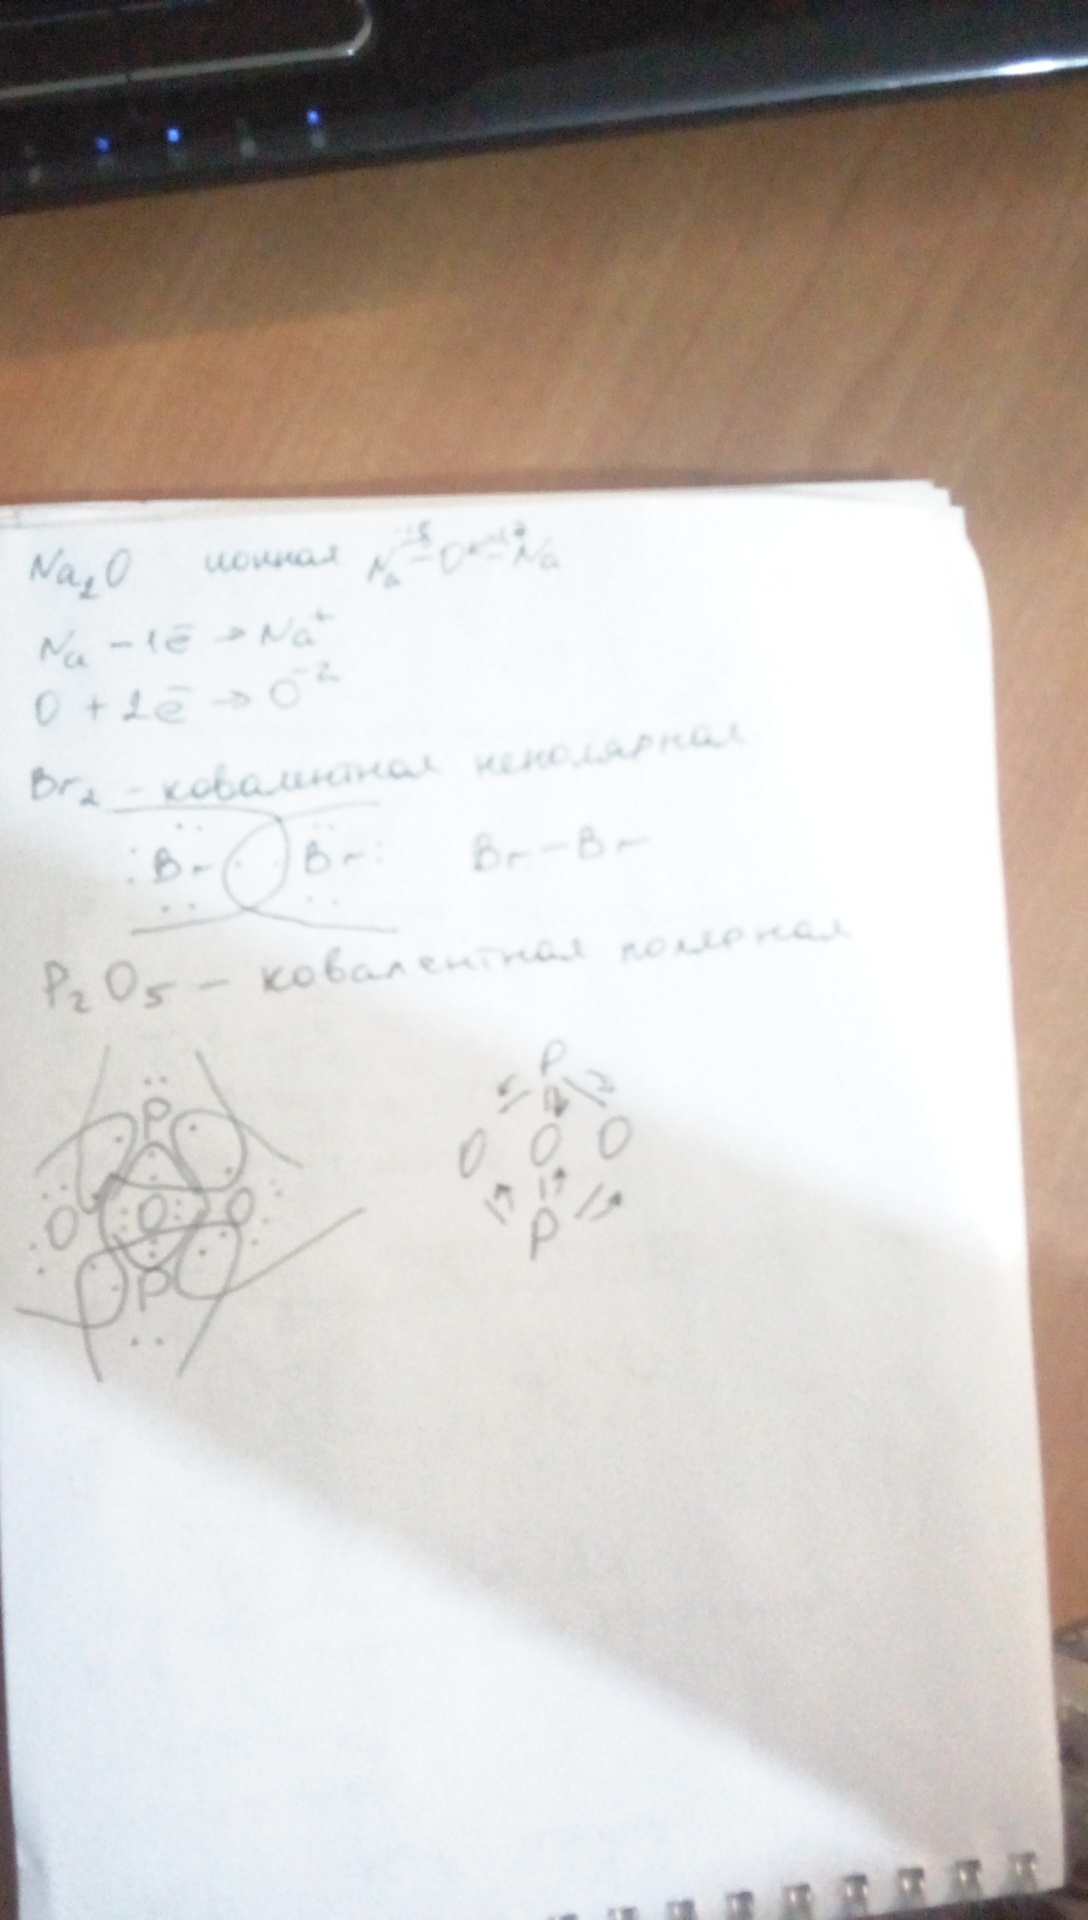 Na₂O ионная Na – O – Na
Na – 1ē → Na⁺
O + 2ē → O⁻²
Br₂ – ковалентная неполярная
Br Br Br – Br
P₂O₅ – ковалентная полярная
P P
O O O O O O
P P